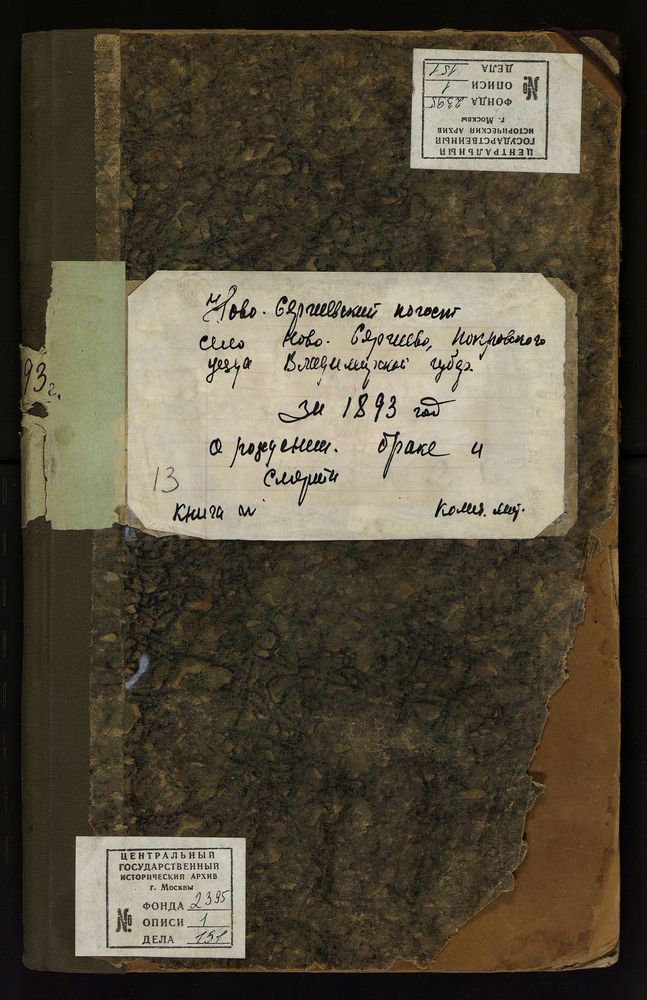 ЦЕНТРАЛЬНЫЙ
ГОСУДАРСТВЕННЫЙ
ИСТОРИЧЕСКИЙ АРХИВ
г. Москвы
№
ФОНДА 2395
ОПИСИ 1
ДЕЛА 151
93 г.
Ново-Сергиевский погост
село Ново-Сергиево, Покровского
уезда Владимирской губер.
за 1893 год
о рождении. браке и
смерти
13
Книга
ЦЕНТРАЛЬНЫЙ
ГОСУДАРСТВЕННЫЙ
ИСТОРИЧЕСКИЙ АРХИВ
г. Москвы
№
ФОНДА 2395
ОПИСИ 1
ДЕЛА 151